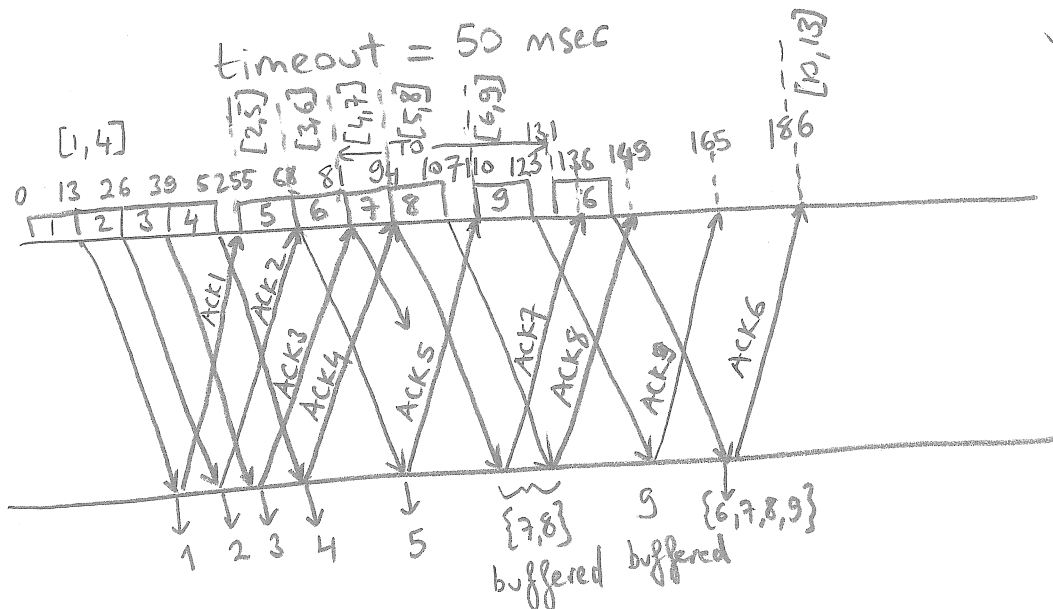 timeout = 50 msec
[1,4] [2,5] [3,6] [4,7] [5,8] [6,9] [10,13]
TO 131
0 13 26 39 52 55 68 81 94 107 110 123 136 149 165 186
1 2 3 4 5 6 7 8 9 6
ACK1 ACK2 ACK3 ACK4 ACK5 ACK7 ACK8 ACK9 ACK6
1 2 3 4 5 {7,8} 9 {6,7,8,9}
buffered buffered